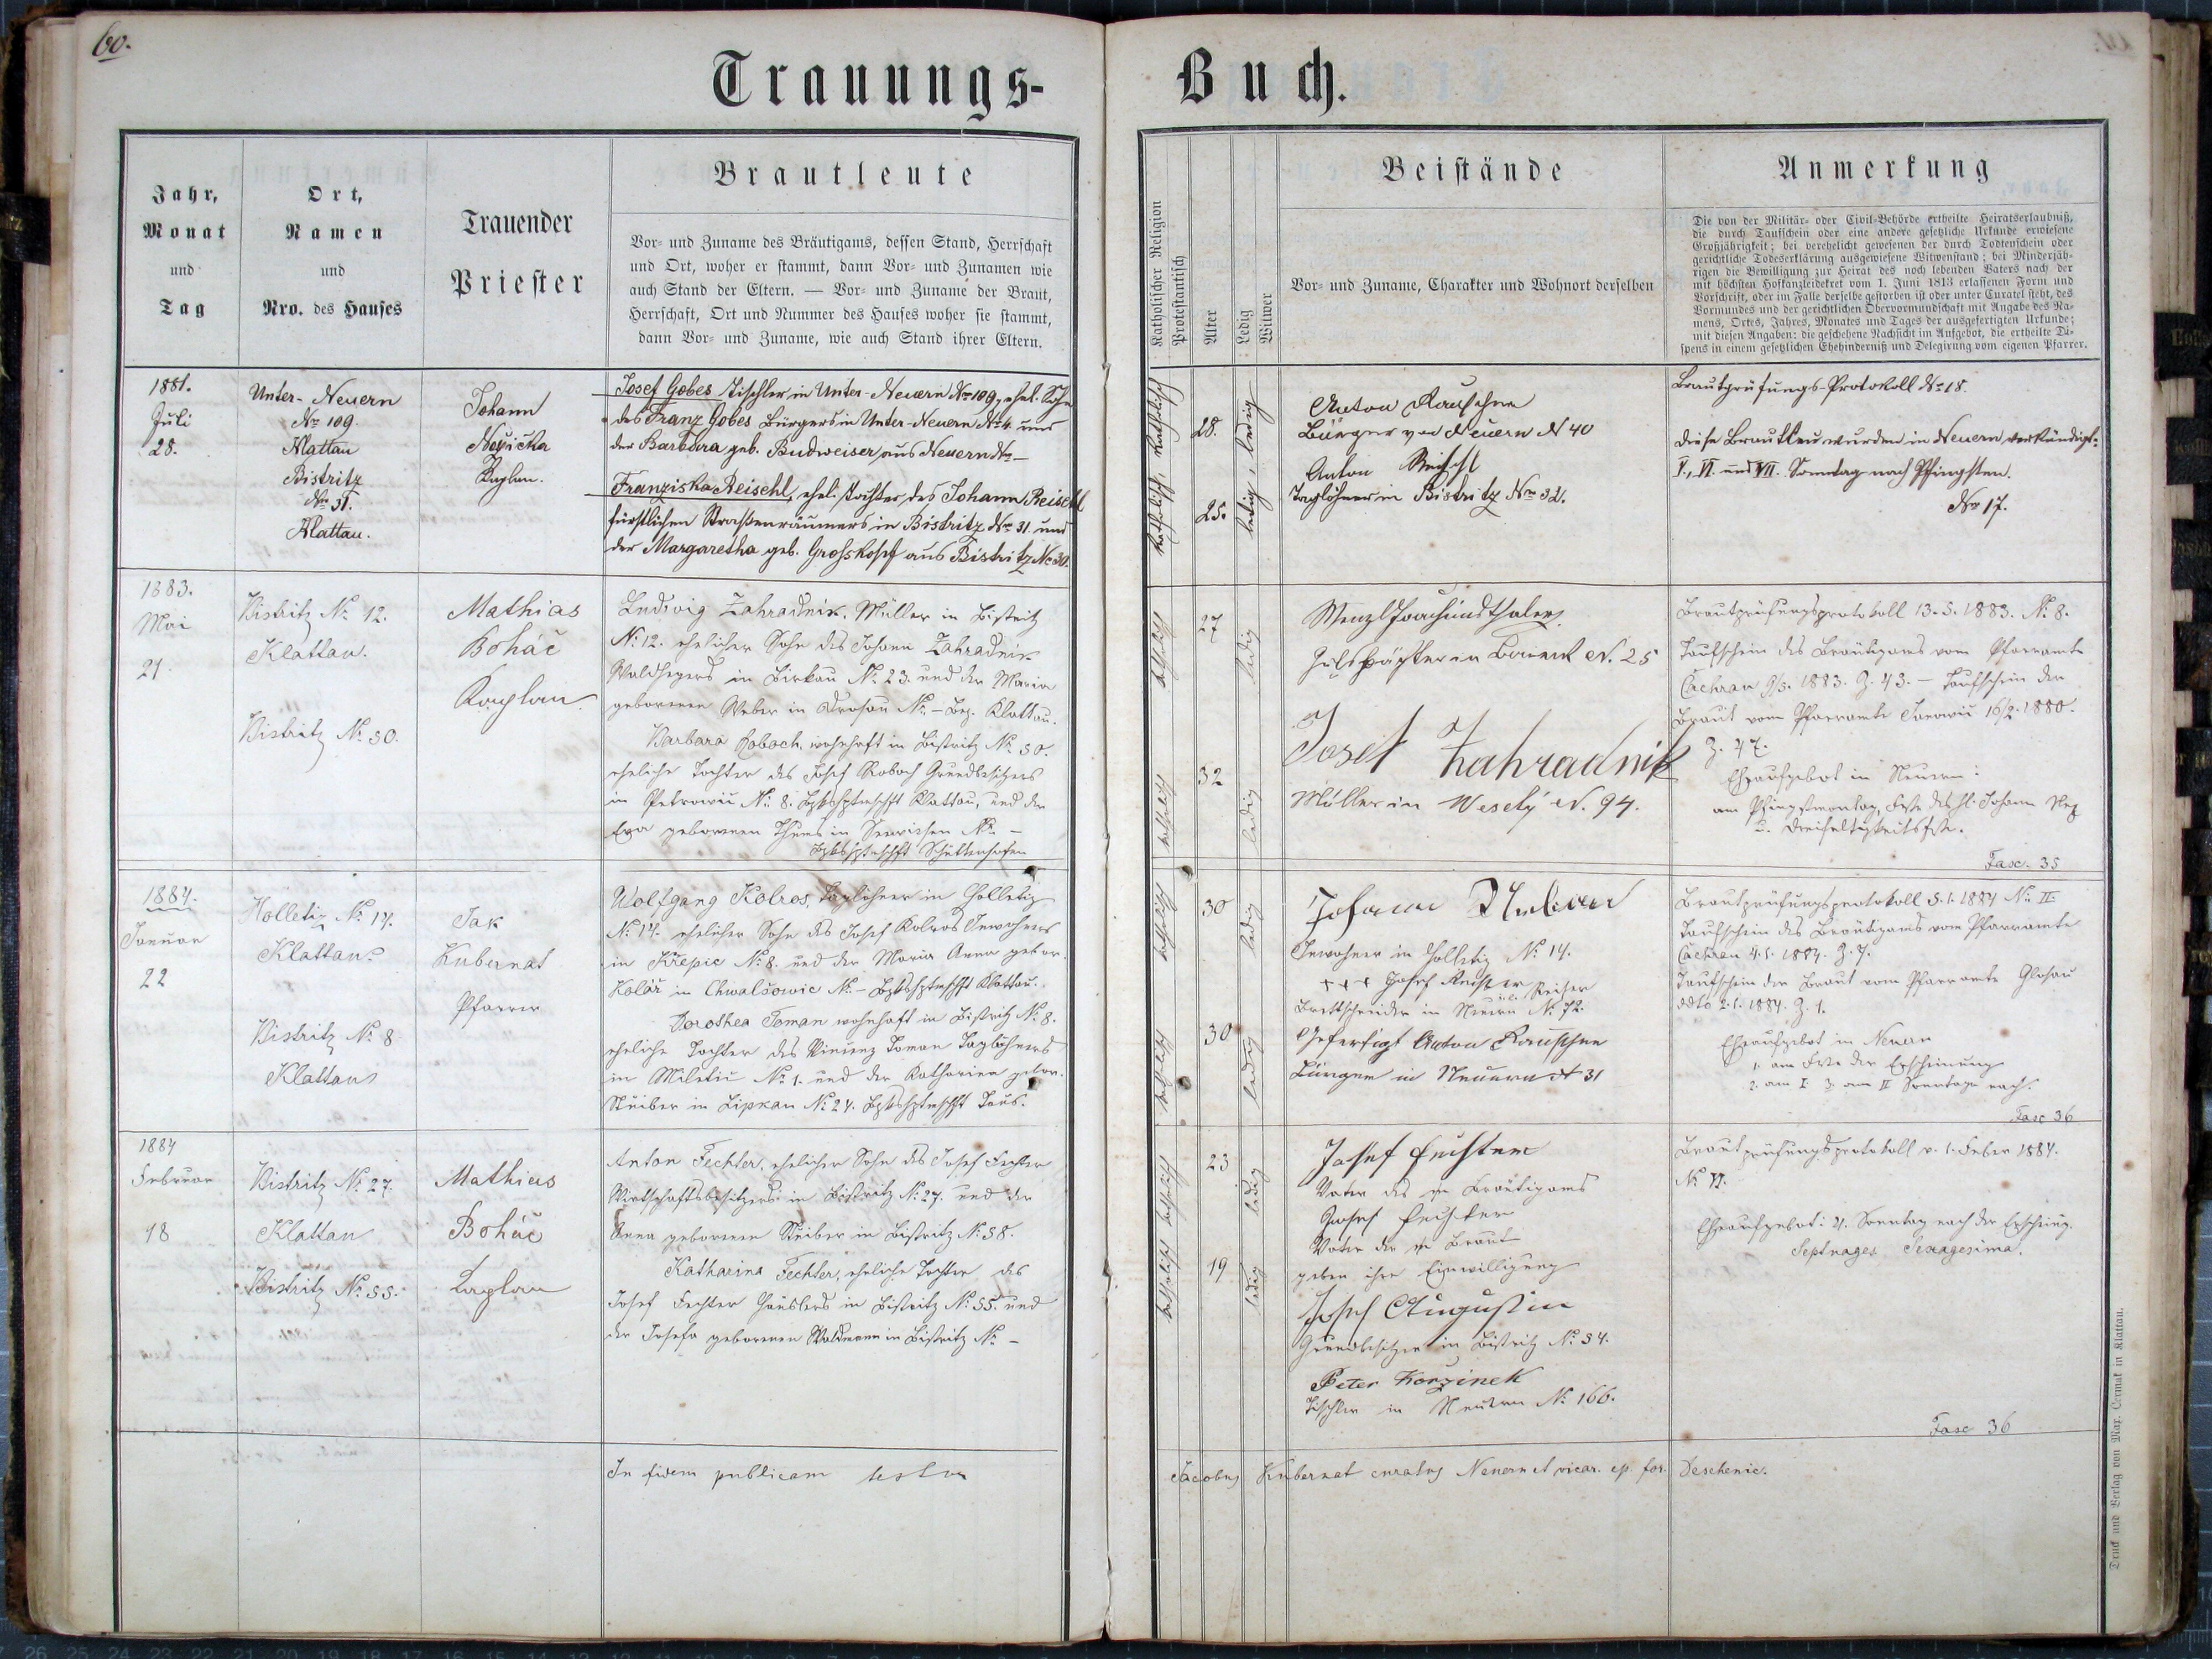 60.
Trauungs-
Buch.
Jahr,
Monat
und
Tag
Ort,
Namen
und
Nro. des Hauses
Trauender
Priester
Brautleute
Vor- und Zuname des Bräutigams, dessen Stand, Herrschaft
und Ort, woher er stammt, dann Vor- und Zunamen wie
auch Stand der Eltern. — Vor- und Zuname der Braut,
Herrschaft, Ort und Nummer des Hauses woher sie stammt,
dann Vor- und Zuname, wie auch Stand ihrer Eltern.
Katholischer Religion
Protestantisch
Alter
Ledig
Witwer
Beistände
Vor- und Zuname, Charakter und Wohnort derselben
Anmerkung
Die von der Militär- oder Civil-Behörde ertheilte Heiratserlaubniß,
die durch Taufschein oder eine andere gesetzliche Urkunde erwiesene
Großjährigkeit; bei verehelicht gewesenen der durch Todtenschein oder
gerichtliche Todeserklärung ausgewiesene Witwenstand; bei Minderjäh-
rigen die Bewilligung zur Heirat des noch lebenden Vaters nach der
mit höchsten Hofkanzleidekret vom 1. Juni 1813 erlassenen Form und
Vorschrift, oder im Falle derselbe gestorben ist oder unter Curatel steht, des
Vormundes und der gerichtlichen Obervormundschaft mit Angabe des Na-
mens, Ortes, Jahres, Monates und Tages der ausgefertigten Urkunde;
mit diesen Angaben: die geschehene Nachsicht im Aufgebot, die ertheilte Di-
spens in einem gesetzlichen Ehehinderniß und Delegirung vom eigenen Pfarrer.
1881.
Juli
28.
Unter-Neuern
No 109
Klattau
Bistritz
No 31.
Klattau.
Johann
Kaplan.
Josef Gobes Tischler in Unter-Neuern No 109, ehel. Sohn
des Franz Gobes Bürgers in Unter-Neuern No 4. und
der Barbara geb. Budweiser aus Neuern No —
Franziska Reischl, ehel. Tochter des Johann Reischl
fürstlichen Straßenräumers in Bistritz No 31. und
der Margaretha geb. Grosskopf aus Bistritz No 30.
katholisch katholisch
28.
25.
ledig, ledig
Anton Rauscher
Bürger von Neuern N 40
Anton Reischl
Taglöhner in Bistritz No 32.
Brautprüfungs-Protokoll No 18.
Diese Brautleu wurden in Neuern verkündigt:
V., VI. und VII. Sonntag nach Pfingsten.
No 17.
1883.
Mai
21.
Bistritz No 12.
Klattau.
Bistritz No 50.
Mathias
Boháč
Kaplan.
Ludwig Zahradnik, Müller in Bistritz
No 12. ehelicher Sohn des Johann Zahradnik
Waldhegers in Birkau No 23. und der Maria
geborenen Weber in Drosau No — Bez. Klattau.
Barbara wohnhaft in Bistritz No 50.
eheliche Tochter des Josef Grundbesitzers
in Petrowic No 8. Bzkshptmschft Klattau, und der
Eva geborenen in No —
Bzkshptmschft Schüttenhofen
katholisch
katholisch
27
32
ledig
ledig
Wenzl Joachimsthaler
Gutspächter in N. 25
Josef Zahradnik
Müller in Weselý N. 94.
Brautprüfungsprotokoll 13.5.1883. No 8.
Taufschein des Bräutigams vom Pfarramte
Čachrau 9/5. 1883. Z. 43. — Taufschein der
Braut vom Pfarramte 16/2. 1880.
Z. 47.
Eheaufgebot in Neuern:
am Pfingstmontag, Feste des hl. Johann Nep
u. Dreifaltigkeitsfeste.
Fasc. 35
1884.
Januar
22
Holletiz No 14.
Klattau
Bistritz No 8
Klattau
Jak
Kubernat
Pfarrer
Wolfgang Kolros, Taglöhner in Holletiz
No 14. ehelicher Sohn des Josef Kolros Inwohners
in Křepic No 8. und der Maria Anna gebor.
Kolář in Chwalšowic No — Bzkshptmschft Klattau.
Dorothea Toman wohnhaft in Bistritz No 8.
eheliche Tochter des Vincenz Toman Taglöhners
in Miletic No 1. und der Katharina gebor.
Stuiber in Lipkau No 24. Bzkshptmschft Taus.
katholisch
katholisch
30
30
ledig
ledig
Johann
Inwohner in Holletiz No 14.
+++ Josef
Brettschneider in Neuern No 72.
Gefertigt Anton Rauscher
Bürger in Neuern N 31
Brautprüfungsprotokoll 5.1.1884 No II
Taufschein des Bräutigams vom Pfarramte
Čachrau 4.1.1884. Z. 7.
Taufschein der Braut vom Pfarramte Glosau
ddto 2.1.1884. Z. 1.
Eheaufgebot in Neuern
1. am Feste der Erscheinung
2. am I. 3. am II Sonntage nach.
Fasc 36
1884
Februar
18
Bistritz No 27.
Klattau
Bistritz No 55.
Mathias
Boháč
Kaplan
Anton Fechter, ehelicher Sohn des Josef Fechter
Wirtschaftsbesitzers in Bistritz No 27. und der
Anna geborenen Stuiber in Bistritz No 58.
Katharina Fechter, eheliche Tochter des
Josef Fechter Häuslers in Bistritz No 55. und
der Josefa geborenen in Bistritz No —
katholisch katholisch
23
19
ledig
ledig
Josef Fechter
Vater des Bräutigams
Josef Fechter
Vater der Braut
geben ihre Einwilligung
Josef Augustin
Grundbesitzer in Bistritz No 54.
Peter Korzinek
Tischler in Neuern No 166.
Brautprüfungsprotokoll v. 1. Feber 1884.
No VI.
Eheaufgebot: 4. Sonntag nach der Erscheing.
Septuages Sexagesima.
Fasc 36
In fidem publicam testor
Jacobus Kubernat curatus Neuern et vicar. ep. for. Deschenic.
Druck und Verlag von Max. Čermak in Klattau.